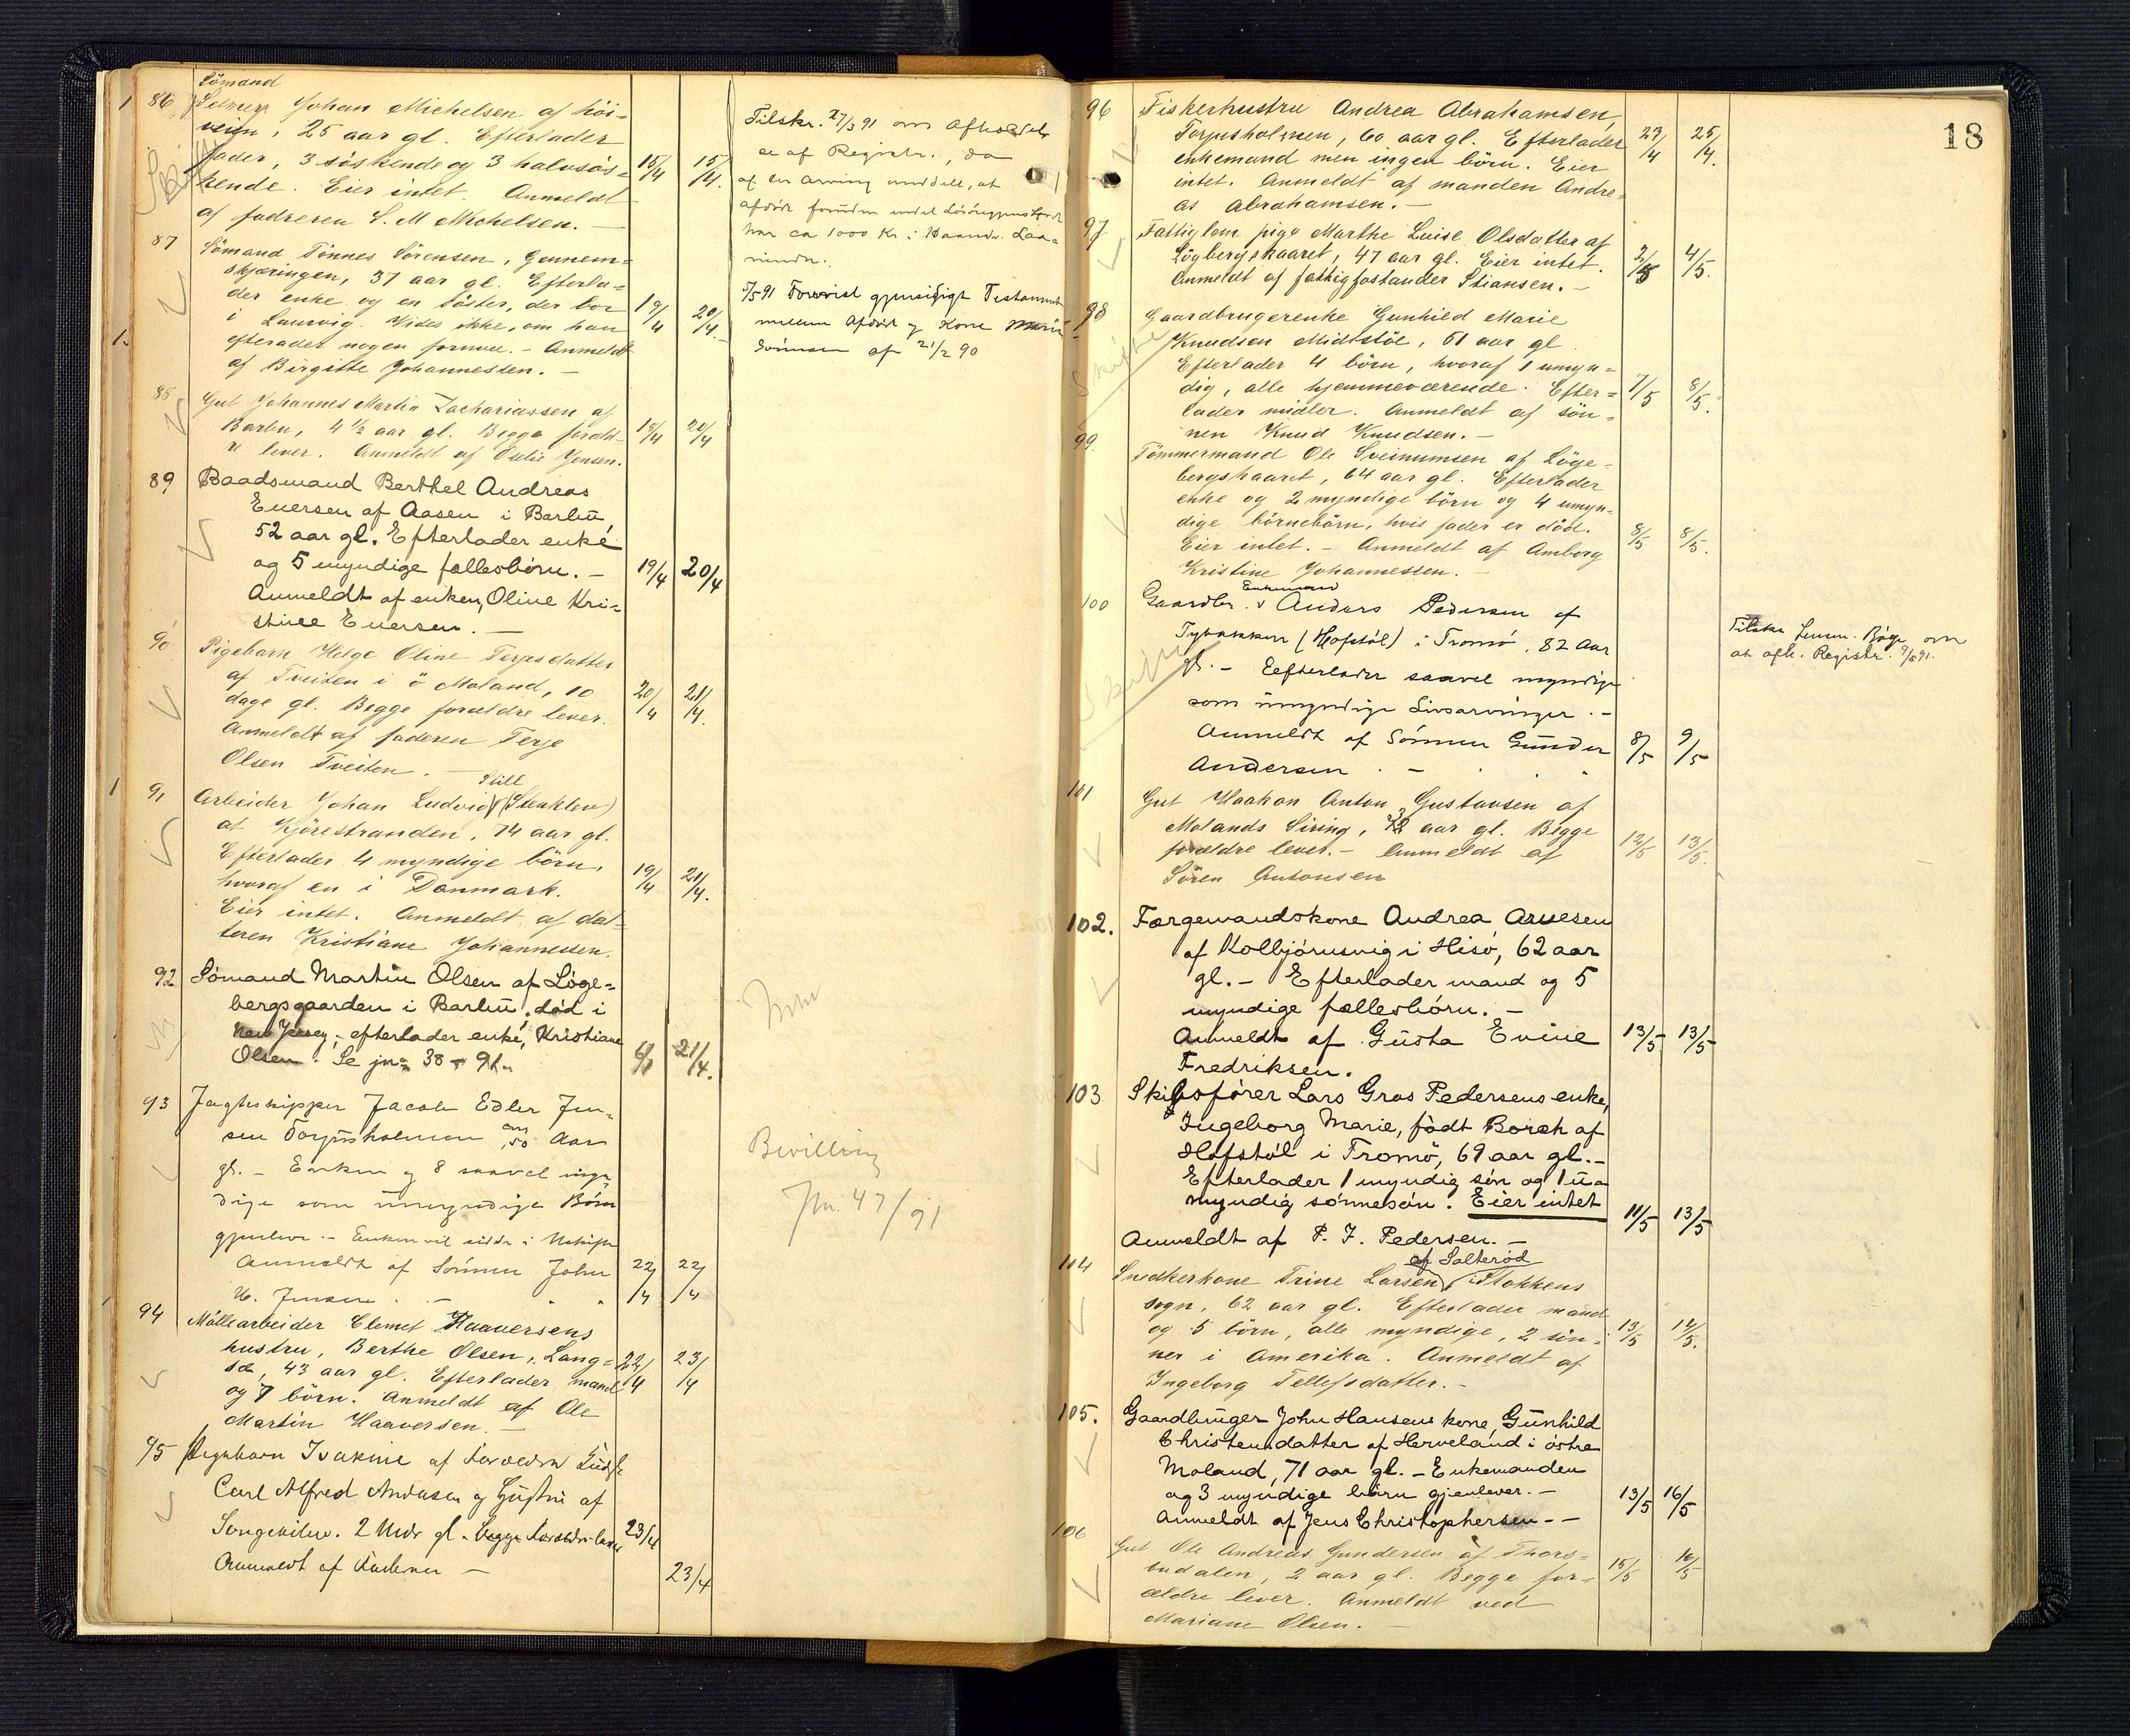 86 Sømand
Johan Michelsen af höi-
veien, 25 aar gl. Efterlader
fader, 3 söskende og 3 halvsös-
kende. Eier intet. Anmeldt 15/4 15/4.
af faderen S. M Michelsen. —
Tilskr. 27/3 91 om Afholdelse
af Registr., da
af en Arving meddelt, at
Afdöde foruden endel
har ca 1000 Kr. i
87 Sömand Tönnes Sörensen, Gennem-
skjæringen, 37 aar gl. Efterla-
der enke og en söster, der bor 19/4 20/4.
i Laurvig. Vides ikke, om han
efterlader nogen formue. — Anmeldt
af Birgitte Johannessen. —
5/5 91 Forevist gjensidigt Testament
mellem Afdöde og Kone Marie
Sörensen af 21/2 90
88 Gut Johannes Martin Zachariassen af
Barbu, 4 1/2 aar gl. Begge foræld- 18/4 20/4
re lever. Anmeldt af Jensen.
89 Baadsmand Berthel Andreas
Eversen af Aasen i Barbu,
52 aar gl. Efterlader enke
og 5 myndige fællesbörn. — 19/4 20/4
Anmeldt af enken, Oline Kri-
stine Eversen. —
90 Pigebarn Helga Oline Terjesdatter
af Tveiten i ö Moland, 10
dage gl. Begge forældre lever. 20/4 21/4.
Anmeldt af faderen Terje
Olsen Tveiten. —
91 Arbeider Johan Ludvig (Stenklev)
at Kjörestranden, 74 aar gl.
Efterlader 4 myndige börn,
hvoraf en i Danmark. 19/4 21/4.
Eier intet. Anmeldt af dat-
teren Kristiane Johannessen.
92 Sömand Martin Olsen af Löge-
bergsgaarden i Barbu, död i
New Jersey; efterlader enke, Kristiane
Olsen. Se jn= 38 - 91. 21/4.
93 Jagtskipper Jacob Edler Jen-
sen Torjusholmen, om 50 Aar
gl. — Enken og 8 saavel myn-
dige som umyndige Börn
gjenlever. — Enken vil sidde i Uskifte
Anmeldt af Sönnen John 22/4 22/4
N. Jensen. —
Bevilling
Jn. 47/91
94 Möllearbeider Clemet Haaversens
hustru, Berthe Olsen, Lang-
sæ, 43 aar gl. Efterlader mand 22/4 23/4
og 7 börn. Anmeldt af Ole
Martin Haaversen. —
95 Pigebarn Isakine af Forældre
Carl Alfred Andersen og Gustine af
Songekilen. 2 Mdr gl. Begge Forældre lever 23/4
Anmeldt af Faderen — 23/4
18
96 Fiskerhustru Andrea Abrahamsen,
Torjusholmen, 60 aar gl. Efterlader 23/4 25/4.
enkemand men ingen börn. Eier
intet. Anmeldt af manden Andre-
as Abrahamsen. —
97 Fattiglem pige Marthe Luise Olsdatter af
Lögbergskaaret, 47 aar gl. Eier intet. 2/5 4/5.
Anmeldt af fattigforstander Stiansen. —
98 Gaardbrugerenke Gunhild Marie
Knudsen Midtstöl, 51 aar gl.
Efterlader 4 börn, hvoraf 1 umyn-
dig, alle hjemmeværende. Efter- 7/5 8/5.
lader midler. Anmeldt af sön-
nen Knud Knudsen. —
99 Tömmermand Ole Sveinumsen af Löge-
bergskaaret, 64 aar gl. Efterlader
enke og 2 myndige börn og 4 umyn-
dige börnebörn, hvis fader er död. 8/5 8/5.
Eier intet. — Anmeldt af Amborg
Kristine Johannessen. —
100 Gaardbr. Enkemand Anders Pedersen af
Tybakken (Hofstöl) i Tromö, 82 Aar
gl. — Efterlader saavel myndige
som umyndige Livsarvinger. —
Anmeldt af Sönnen Gunder 8/5 9/5
Andersen. —
Tilskr. Lensm. Böge om
at afh. Registr. 9/5 91.
101 Gut Haakon Anton Gustavsen af
Molands aar gl. Begge
forældre lever. — Anmeldt af 12/5 13/5.
Sören Antonsen
102. Færgemandskone Andrea Arnesen
af Kolbjörnsvig i Hisö, 62 aar
gl. — Efterlader mand og 5
myndige fællesbörn. —
Anmeldt af Gusta Evine 13/5 13/5
Fredriksen.
103 Skibsförer Lars Gros Pedersens enke,
Ingeborg Marie, födt Borch af
Hofstöl i Tromö, 69 aar gl. —
Efterlader 1 myndig sön og 1 u-
myndig sönnesön. Eier intet 11/5 13/5
Anmeldt af P. J. Pedersen. —
104 Snedkerkone Trine Larsen af Salteröd i Stokkens
sogn, 62 aar gl. Efterlader mand
og 5 börn, alle myndige, 2 sön- 13/5 14/5.
ner i Amerika. Anmeldt af
Ingeborg Tellefsdatter. —
105. Gaardbruger John Hansens kone, Gunhild
Christensdatter af Herveland i östre
Moland, 71 aar gl. — Enkemanden
og 3 myndige börn gjenlever. — 13/5 16/5
Anmeldt af Jens Christophersen. —
106 Gut Ole Andreas Gundersen af Thors-
budalen, 2 aar gl. Begge for- 15/5 16/5
ældre lever. Anmeldt ved
Mariane Olsen. —